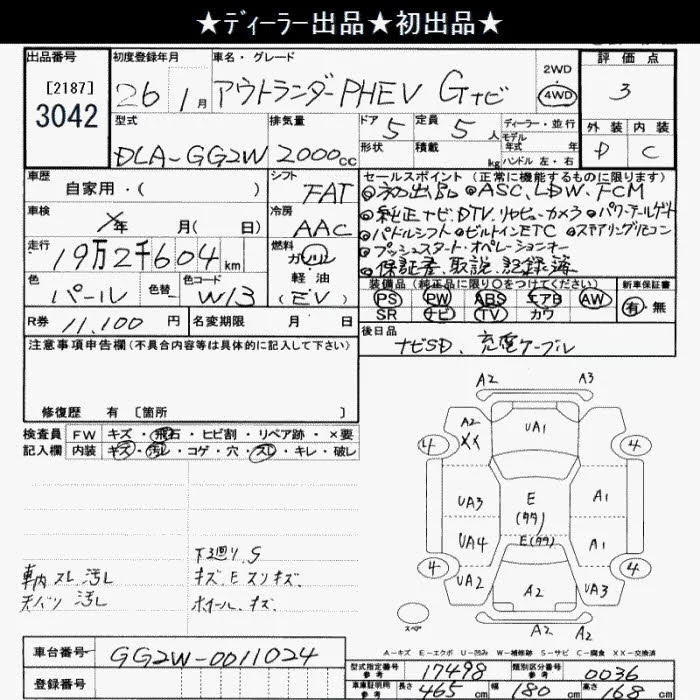 ★ディーラー出品★初出品★
出品番号
[2187]
3042
初度登録年月
26 1月
車名・グレード
アウトランダーPHEV Gナビ
2WD
4WD
評価点
3
外装 内装
D C
型式
DLA-GG2W
排気量
2000cc
ドア 5
形状
定員 5人
積載 kg
ディーラー・並行
モデル
年式 年
ハンドル 左・右
車歴
自家用・( )
シフト
FAT
車検
年 月( 日)
冷房
AAC
走行
19万2千604km
燃料
ガソリン
軽油
(EV)
色
パール
色替
色コード
W13
セールスポイント(正常に機能するものに限ります)
◎初出品 ◎ASC、LDW、FCM
◎純正ナビ、DTV、リヤビューカメラ ◎パワーテールゲート
◎パドルシフト ◎ビルトインETC ◎ステアリングリモコン
◎プッシュスタート・オペレーションキー
◎保証書、取説、記録簿
装備品(純正品に限り○をつけてください)
PS PW ABS エアB AW
SR ナビ TV カワ
新車保証書
有・無
R券 11,100円
名変期限 月 日
後日品
ナビSD、充電ケーブル
注意事項申告欄(不具合内容等は具体的に記入して下さい)
修復歴 有 〔箇所 〕
検査員
記入欄
FW キズ・飛石・ヒビ割・リペア跡・×要
内装 キズ・汚れ・コゲ・穴・スレ・キレ・破レ
車内 スレ 汚レ
天バリ 汚レ
下廻り、S
キズ、E スリキズ、
ホイール、キズ、
A2 A3
A2
XX
UA1
4 4
UA3
E
(タタ)
A1
UA4
E(タタ)
A1
4 4
UA2
A2
UA3
スペア
A2 A2
A-キズ E-エクボ U-凹み W-補修跡 S-サビ C-腐食 XX-交換済
車台番号
GG2W-0011024
登録番号
型式指定番号
参考
17498
類別区分番号
参考
0036
車庫証明用
参考
長さ 465cm 幅 180cm 高さ 168cm